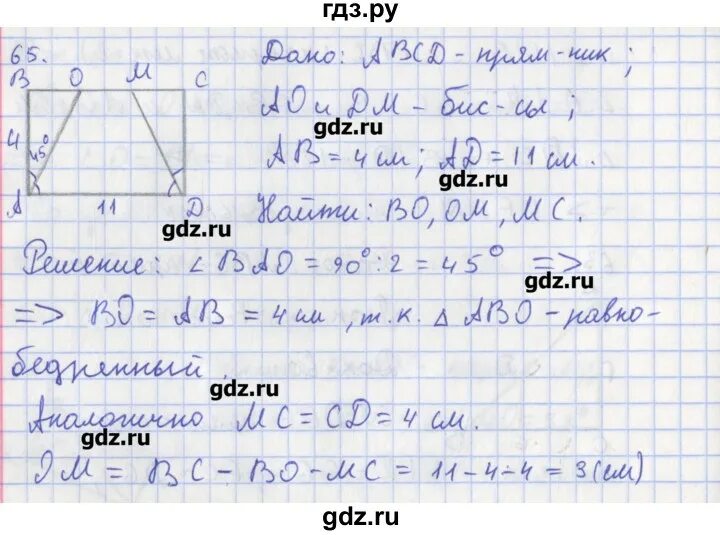 гдз.ру
65.
Дано: ABCD - прям-ник;
B O M C
AO и DM - бис-сы;
gdz.ru
4 45°
AB = 4 см; AD = 11 см.
gdz.ru
A 11 D
Найти: BO, OM, MC.
gdz.ru
Решение: ∠ BAO = 90° : 2 = 45° =>
gdz.ru
=> BO = AB = 4 см, т.к. △ ABO - равно-
бедренный.
gdz.ru
Аналогично MC = CD = 4 см.
gdz.ru
OM = BC - BO - MC = 11 - 4 - 4 = 3 (см)
gdz.ru